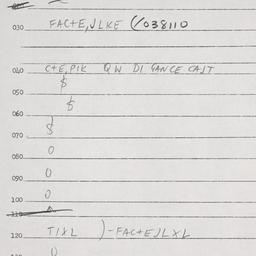 030 FACTE, JLKE (/038110
040 CTE, PIK QW DI GANCE CAJT
050 $
060 $
070 $
080 0
090 0
100 0
110
120 TIXL )-FACTEJLXL
0